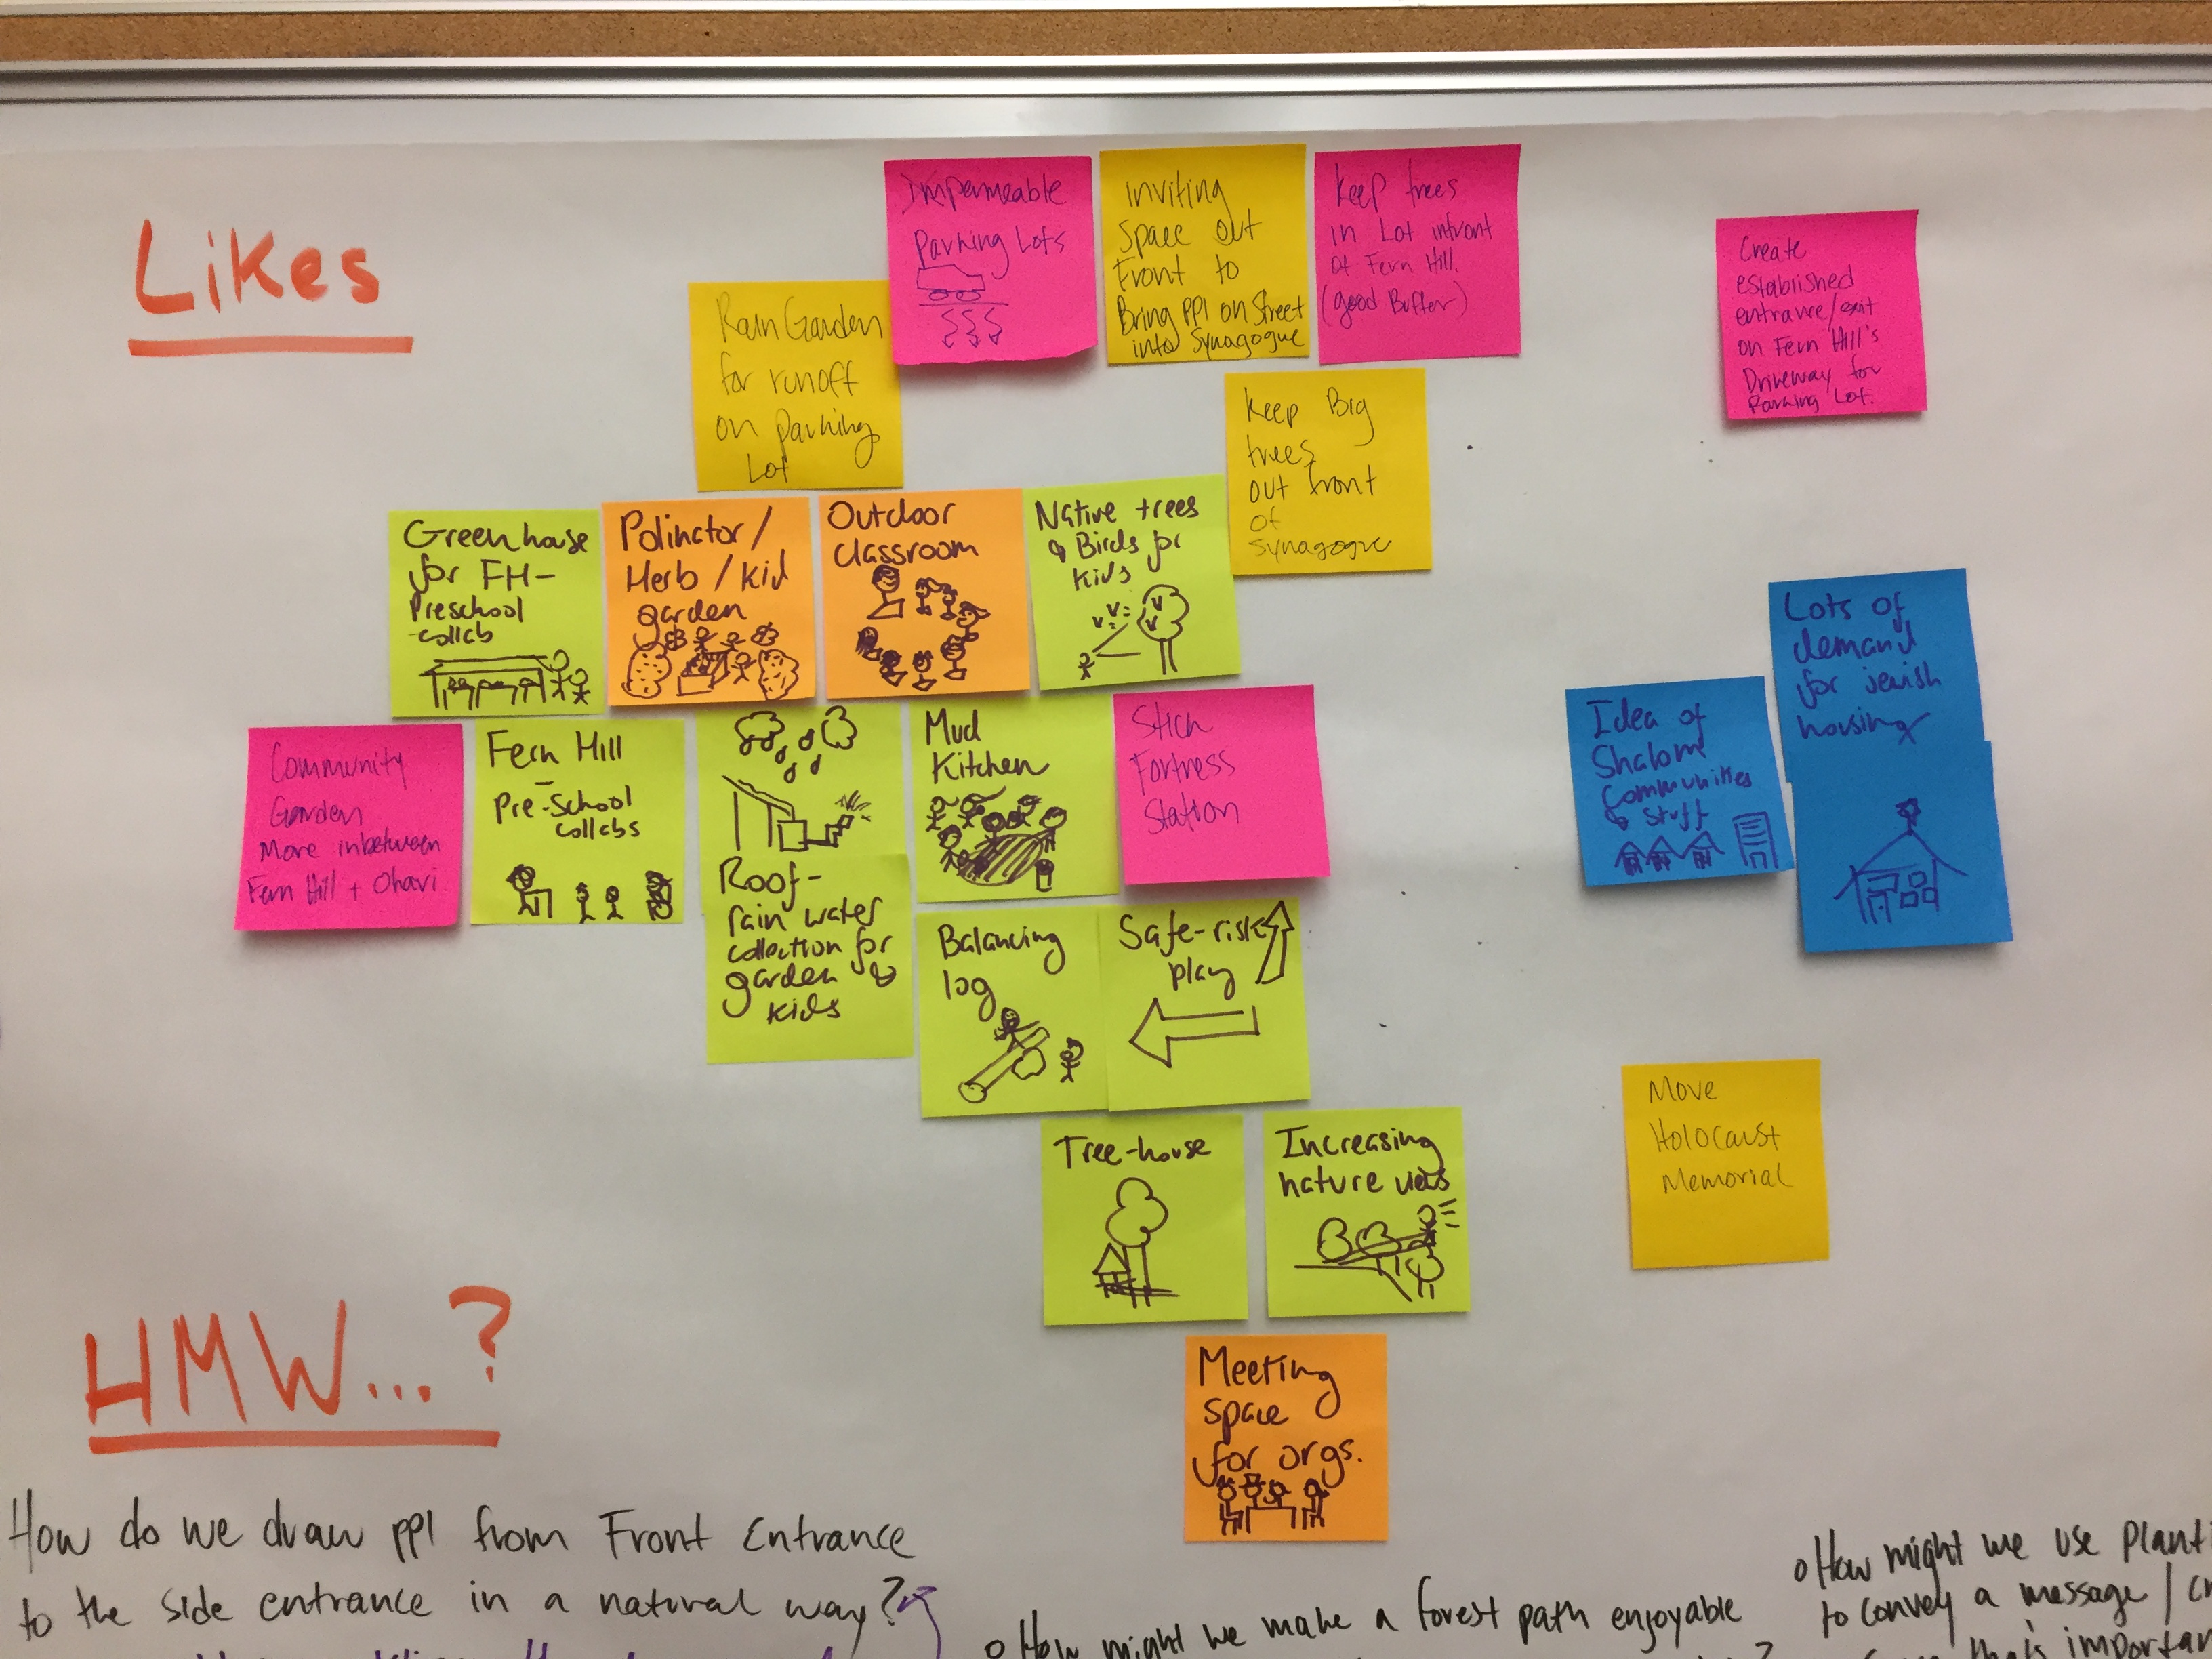 Likes
Impermeable
Parking Lots
Inviting
Space out
Front to
Bring ppl on Street
into Synagogue
Keep trees
in Lot infront
of Fern Hill.
(good Buffer)
Create
established
entrance/exit
on Fern Hill's
Driveway for
Parking Lot.
Rain Garden
for runoff
on parking
Lot
Keep Big
trees
out front
of
Synagogue
Greenhouse
for FH-
Preschool
collab
Polinator/
Herb/kid
garden
Outdoor
classroom
Native trees
& Birds for
kids
Lots of
demand
for jewish
housing
Idea of
Shalom
Communities
& stuff
Community
Garden
More inbetween
Fern Hill + Ohavi
Fern Hill
-
Pre-School
collabs
Roof-
rain water
collection for
garden &
kids
Mud
Kitchen
Stick
Fortress
Station
Balancing
log
Safe-risk
play
Move
Holocaust
Memorial
Tree-house
Increasing
nature views
Meeting
space
for orgs.
HMW...?
How do we draw ppl from Front Entrance
to the side entrance in a natural way?
o How might we make a forest path enjoyable
o How might we use planti
to convey a message /
that's importan